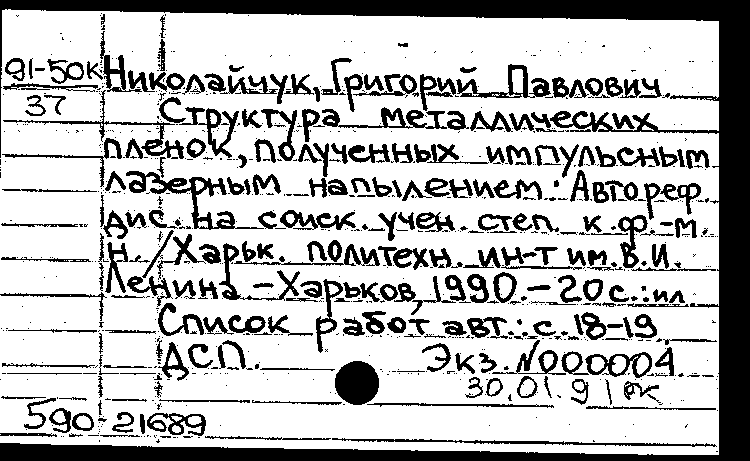 91-50к Николайчук, Григорий Павлович
37 Структура металлических
пленок, полученных импульсным
лазерным напылением: Автореф.
дис. на соиск. учен. степ. к.ф.-м.
н. / Харьк. политехн. ин-т им. В.И.
Ленина. - Харьков, 1990. - 20 с.: ил.
Список работ авт.: с. 18-19
ДСП. Экз. N000004.
30.01.91
590-21689